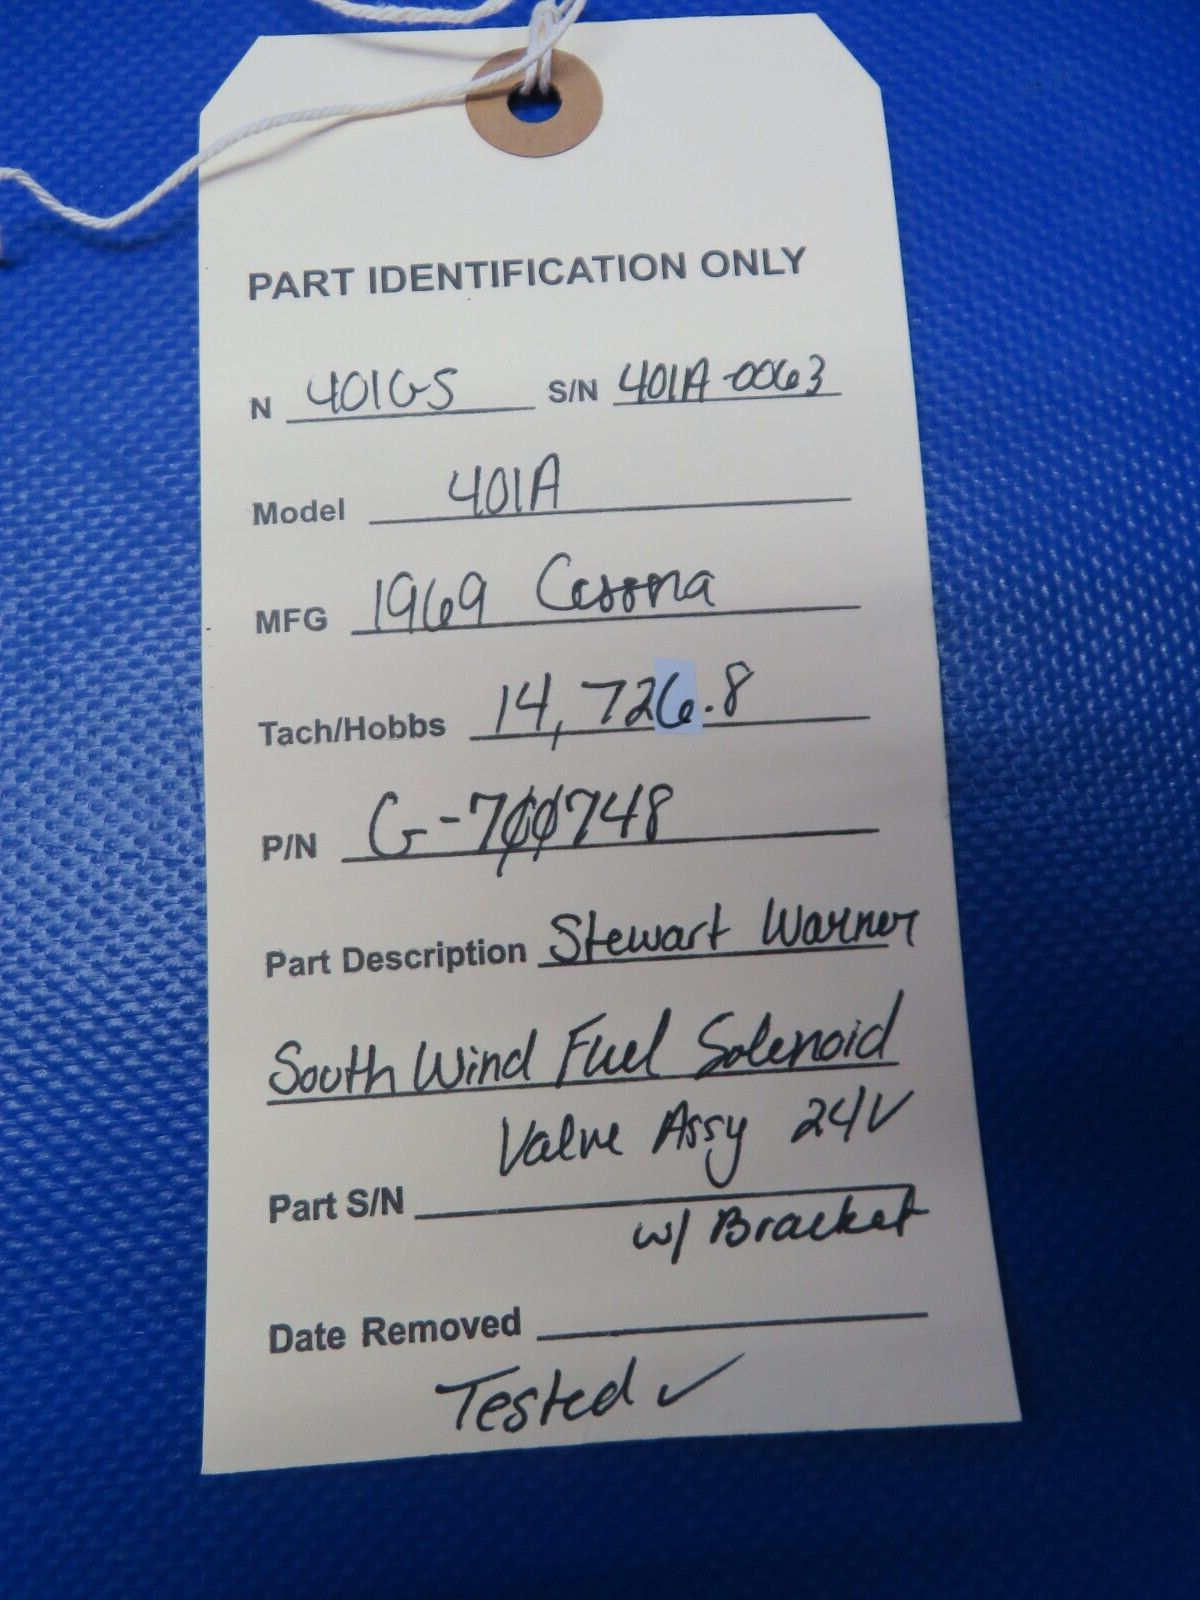 PART IDENTIFICATION ONLY
N 401GS S/N 401A-0063
Model 401A
MFG 1969 Cessna
Tach/Hobbs 14,726.8
P/N G-700748
Part Description Stewart Warner
South Wind Fuel Solenoid
Valve Assy 24V
Part S/N
w/ Bracket
Date Removed
Tested ✓